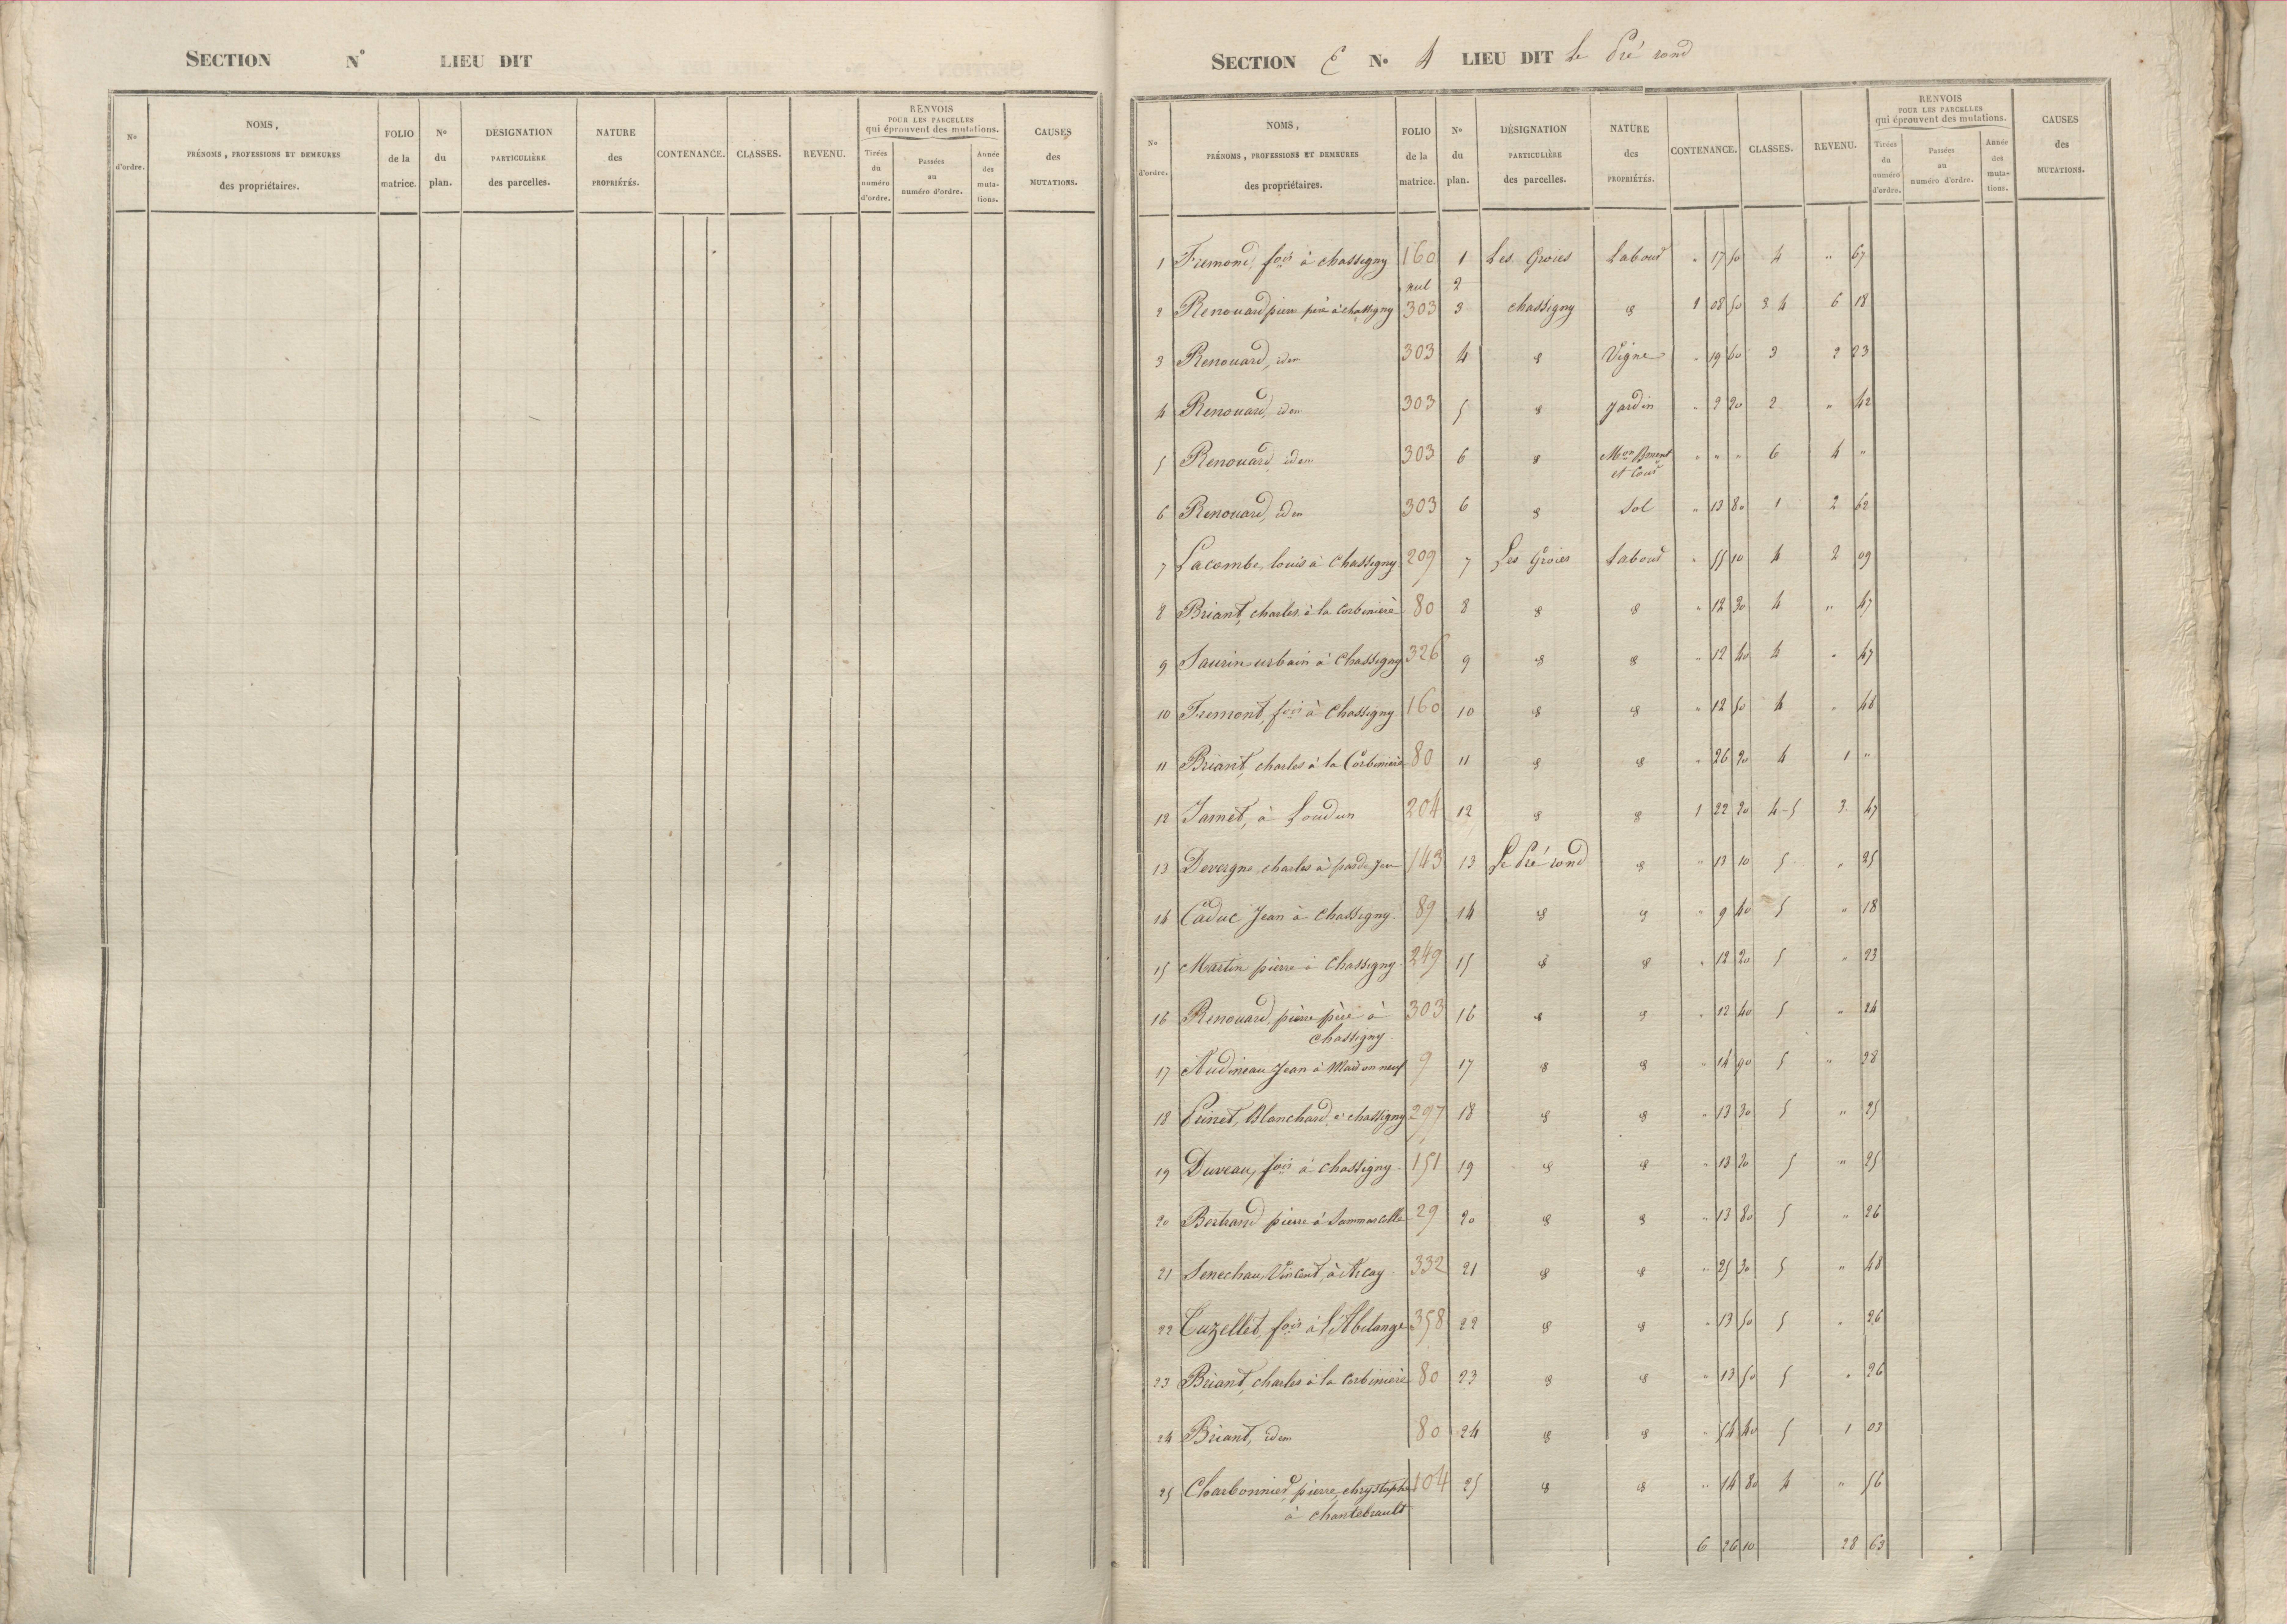 SECTION N° LIEU DIT
N° d'ordre.
NOMS, PRÉNOMS, PROFESSIONS ET DEMEURES des propriétaires.
FOLIO de la matrice.
N° du plan.
DÉSIGNATION PARTICULIÈRE des parcelles.
NATURE des PROPRIÉTÉS.
CONTENANCE.
CLASSES.
REVENU.
RENVOIS POUR LES PARCELLES qui éprouvent des mutations.
Tirées du numéro d'ordre.
Passées au numéro d'ordre.
Année des mutations.
CAUSES des MUTATIONS.
SECTION C N° 4 LIEU DIT Le Pré rond
N° d'ordre.
NOMS, PRÉNOMS, PROFESSIONS ET DEMEURES des propriétaires.
FOLIO de la matrice.
N° du plan.
DÉSIGNATION PARTICULIÈRE des parcelles.
NATURE des PROPRIÉTÉS.
CONTENANCE.
CLASSES.
REVENU.
RENVOIS POUR LES PARCELLES qui éprouvent des mutations.
Tirées du numéro d'ordre.
Passées au numéro d'ordre.
Année des mutations.
CAUSES des MUTATIONS.
1 Fremond, fois à chassigny 160 1 Les Groies Labour " 17 50 4 " 67
nul 2
2 Renouard pierre père à chassigny 303 3 chassigny d 1 08 50 3 4 6 18
3 Renouard, idem 303 4 d Vigne " 19 60 3 2 23
4 Renouard, idem 303 5 d Jardin " 2 20 2 " 42
5 Renouard, idem 303 6 d Mon Bment " " " 6 4 "
et Cour
6 Renouard, idem 303 6 d Sol " 13 80 1 2 62
7 Lacombe, louis à Chassigny 209 7 Les Groies Labour " 55 10 4 2 09
8 Briant, charles à la Corbinierè 80 8 d d " 12 30 4 " 47
9 Saurin urbain à Chassigny 326 9 d d " 12 40 4 " 47
10 Fremont, fois à Chassigny 160 10 d d " 12 50 4 " 48
11 Briant, charles à la Corbinierè 80 11 d d " 26 20 4 1 "
12 Jamet, à Loudun 204 12 d d 1 22 20 4-5 3 47
13 Devergne, charles à 143 13 Le Pré rond d " 13 10 5 " 25
14 Caduc Jean à Chassigny 89 14 d d " 9 40 5 " 18
15 Martin pierre à Chassigny 249 15 d d " 12 20 5 " 23
16 Renouard, pierre père à 303 16 d d " 12 40 5 " 24
chassigny
17 Audineau Jean à Maison neuf 9 17 d d " 14 90 5 " 28
18 Peinet, Blanchard, à chassigny 297 18 d d " 13 30 5 " 25
19 Duveau, fois à chassigny 151 19 d d " 13 20 5 " 25
20 Bertrand pierre à Sammarcolle 29 20 d d " 13 80 5 " 26
21 Senechau, Vincent, à 332 21 d d " 25 30 5 " 48
22 Tuzellet, fois à l'Abilange 358 22 d d " 13 50 5 " 26
23 Briant, charles à la Corbinierè 80 23 d d " 13 50 5 " 26
24 Briant, idem 80 24 d d " 54 40 5 1 03
25 Charbonnier, pierre, chrystophe 104 25 d d " 14 80 4 " 56
à chantebrault
6 26 10 28 63